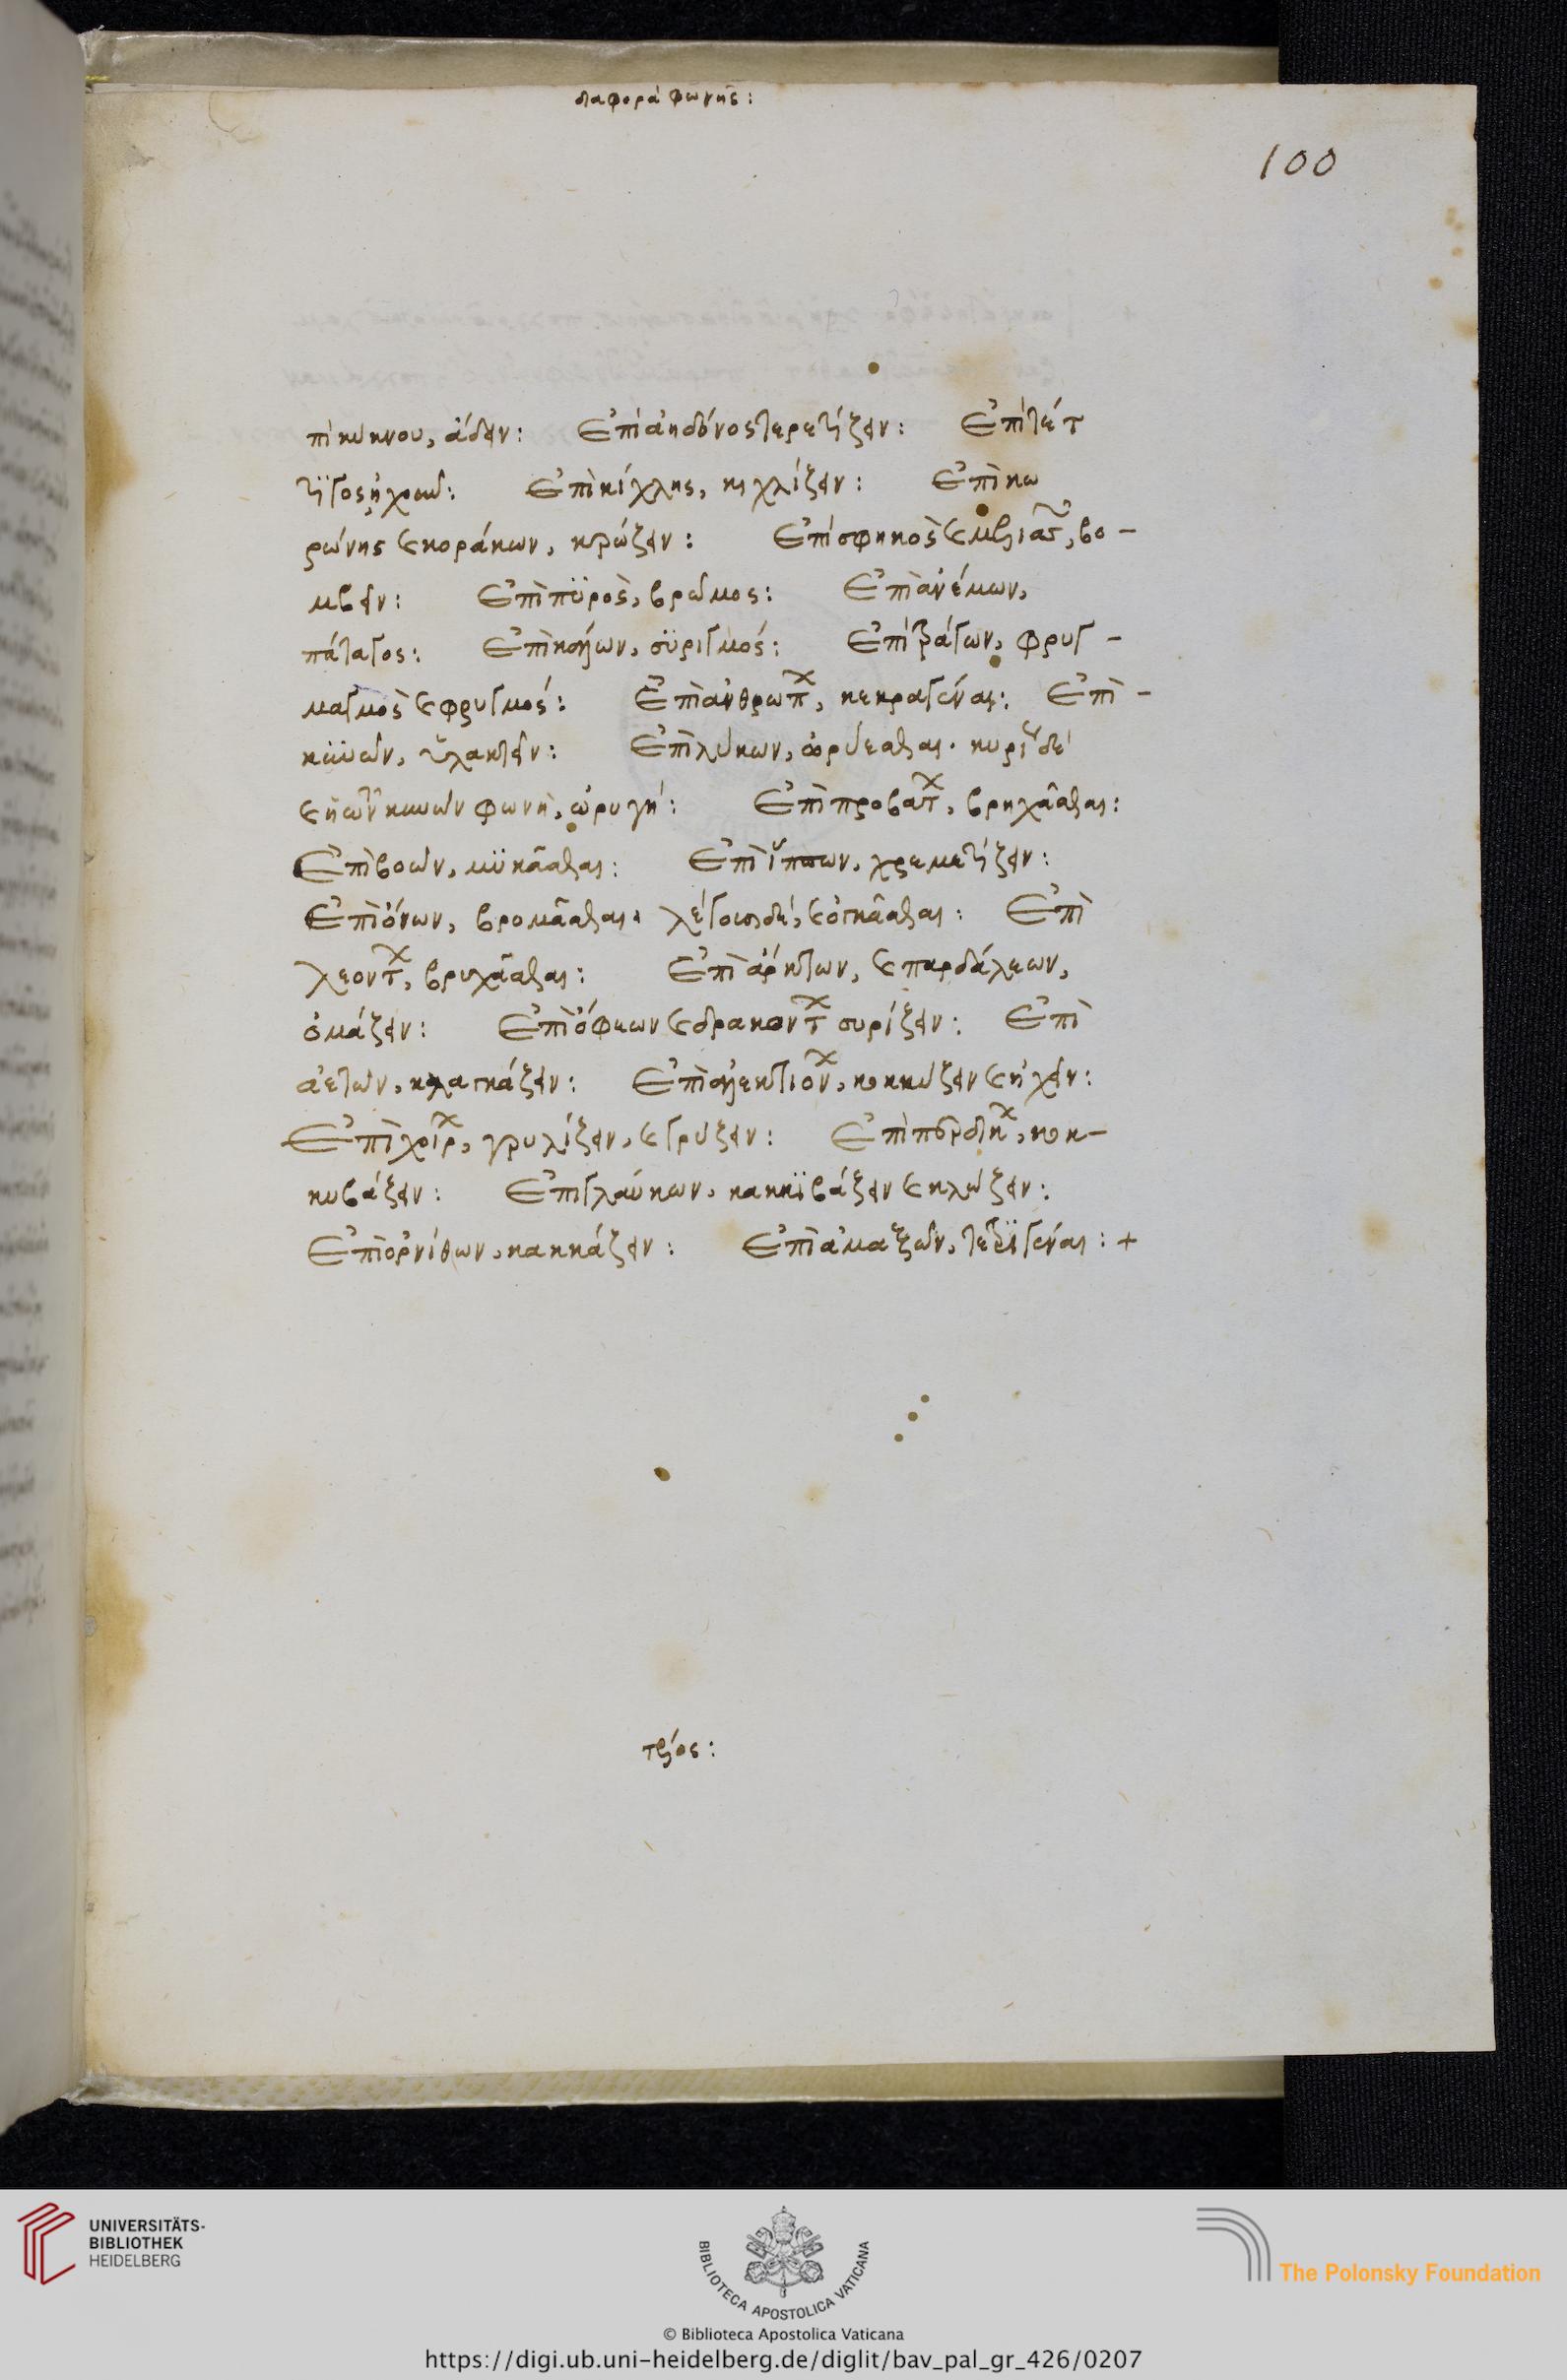 διαφορά φωνῆς:
100
πὶ κύκνου, ἄδειν: Ἐπὶ ἀηδόνος τερετίζειν: Ἐπὶ τέτ
τϊγος ἠχεῖν: Ἐπὶ κίχλης, κιχλίζειν: Ἐπὶ κω
ρώνης καὶ κοράκων, κρώζειν: Ἐπὶ σφηκὸς καὶ βο-
μβεῖν: Ἐπὶ πϋρὸς, βρόμος: Ἐπὶ ἀνέμων,
πάταγος: Ἐπὶ σϋριγμός: Ἐπὶ τράγων, φρυγ-
μαγμὸς καὶ φρυγμός: Ἐπὶ ἀνθρώπ, κεκραγέναι: Ἐπὶ-
κϋνῶν, ὑλακτεῖν: Ἐπὶ λύκων, ὠρύεσθαι. κυρί δὲ
καὶ ἡ τῶν κυνῶν φωνὴ, ὠρυγή: Ἐπὶ προβάτ, βρηχᾶσθαι:
Ἐπὶ βοῶν, μϋκᾶσθαι: Ἐπὶ ἵππων, χρεμετίζειν:
Ἐπὶ ὄνων, βρομᾶσθαι. λέγουσι δὲ, καὶ ὀγκᾶσθαι: Ἐπὶ
λεοντ, βρυχᾶσθαι: Ἐπὶ ἄρκτων, καὶ παρδάλεων,
ὀμάζειν: Ἐπὶ ὄφεων καὶ δρακοντ συρίζειν: Ἐπὶ
ἀετῶν, κλαγκάζειν: Ἐπὶ κοκκύζειν καὶ ἠχεῖν:
Ἐπὶ χοίρ, γρυλίζειν, καὶ γρύζειν: Ἐπὶ περδίκ, κοκ-
κυβάζειν: Ἐπὶ γλαύκων, κακκϊβάζειν καὶ κλώζειν:
Ἐπὶ ὀρνίθων, κακκάζειν: Ἐπὶ ἁμαξῶν, τετρϊγέναι: +
UNIVERSITÄTS-
BIBLIOTHEK
HEIDELBERG
BIBLIOTECA APOSTOLICA VATICANA
The Polonsky Foundation
© Biblioteca Apostolica Vaticana
https://digi.ub.uni-heidelberg.de/diglit/bav_pal_gr_426/0207